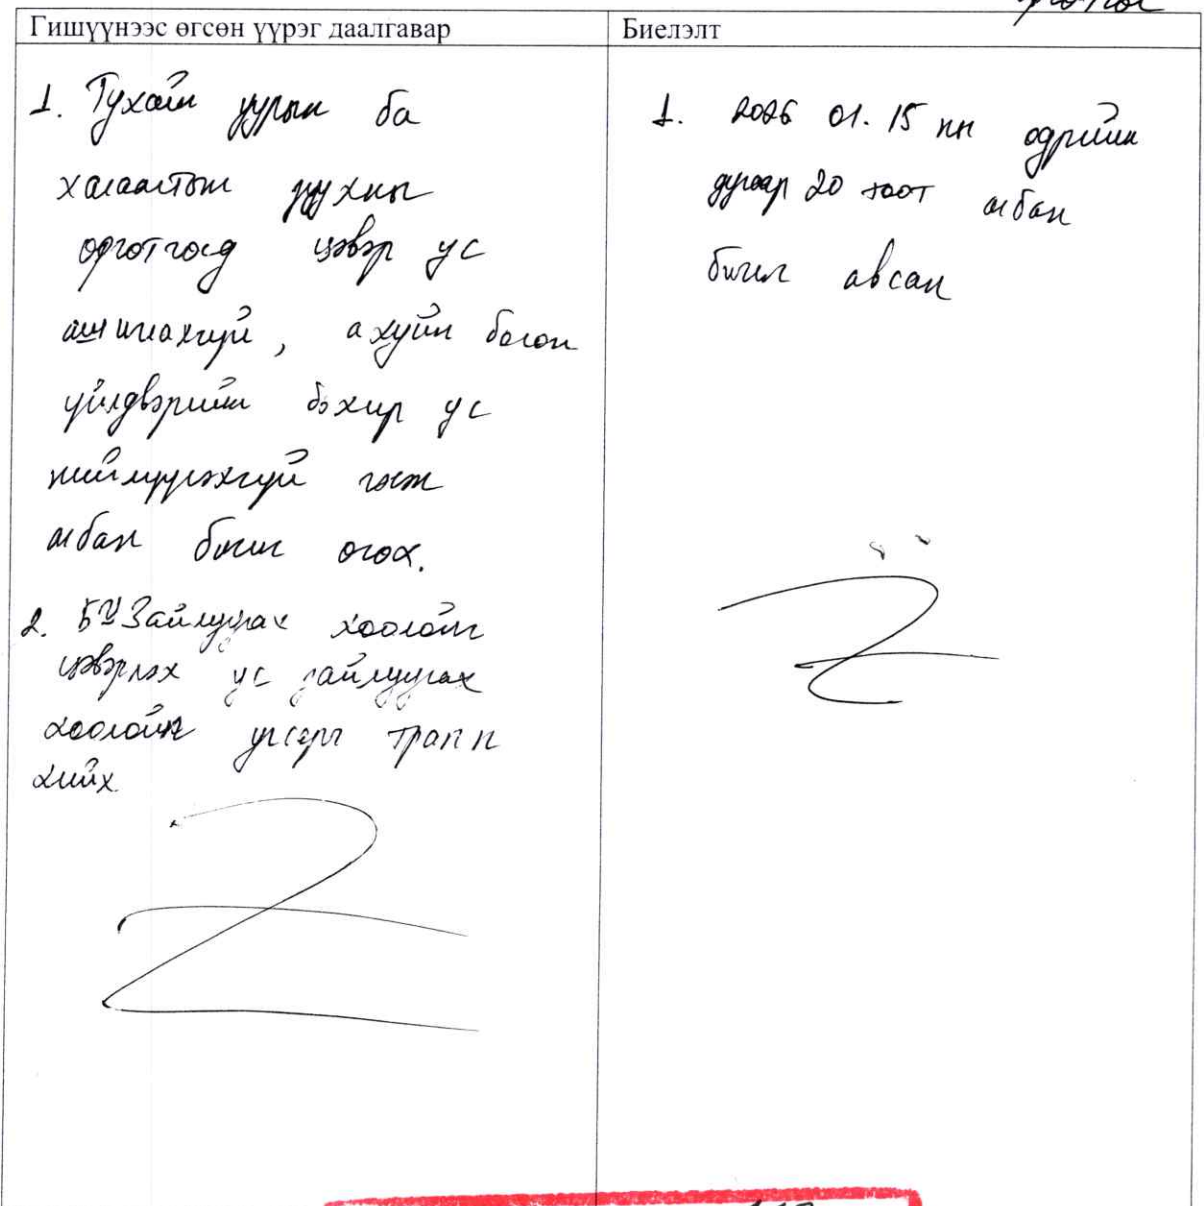 Гишүүнээс өгсөн үүрэг даалгавар
Биелэлт
1. Тухайн уурын ба
халаалтын зуухны
өргөтгөлд цэвэр ус
ашиглахгүй, ахуйн болон
үйлдвэрийн бохир ус
нийлүүлэхгүй гэж
албан бичиг өгөх.
2. Зайлуулах хоолойг
цэвэрлэх ус зайлуулах
хоолойн трапп
хийх
1. 2026 01. 15 ны өдрийн
дугаар 20 тоот албан
бичиг авсан